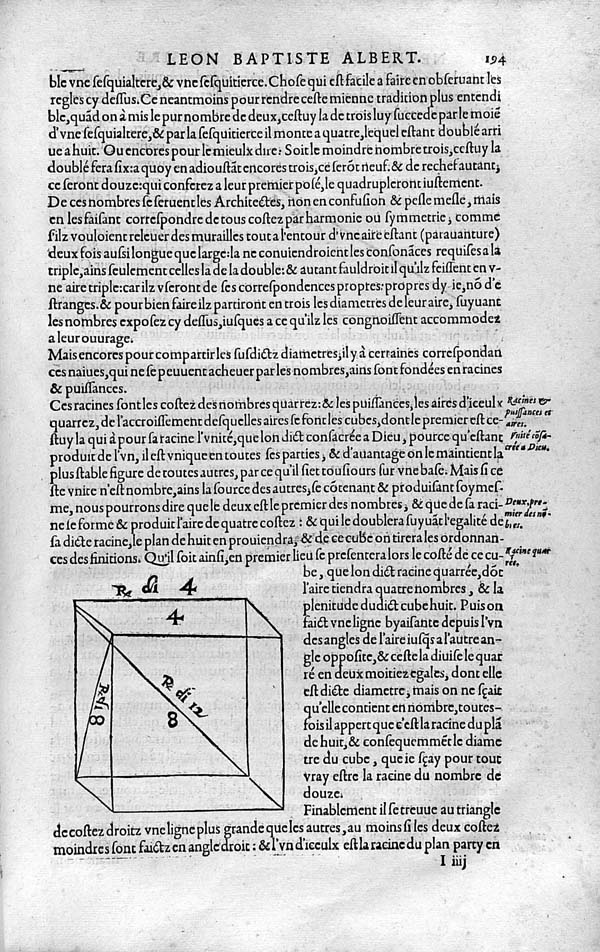 LEON BAPTISTE ALBERT. 194
ble vne sesquialtere, & vne sesquitierce. Chose qui est facile a faire en obseruant les
regles cy dessus. Ce neantmoins pour rendre ceste mienne tradition plus entendi
ble, quãd on à mis le pur nombre de deux, cestuy la de trois luy succede par le moiē
d'vne sesquialtere, & par la sesquitierce il monte a quatre, lequel estant doublé arri
ue a huit. Ou encores pour le mieulx dire: Soit le moindre nombre trois, cestuy la
doublé fera six: a quoy en adioustãt encores trois, ce serõt neuf. & de rechef autant,
ce seront douze: qui conferez a leur premier posé, le quadrupleront iustement.
De ces nombres se seruent les Architectes, non en confusion & pesle mesle, mais
en les faisant correspondre de tous costez par harmonie ou symmetrie, comme
s'ilz vouloient releuer des murailles tout a l'entour d'vne aire estant (parauanture)
deux fois aussi longue que large: la ne conuiendroient les consonãces requises a la
triple, ains seulement celles la de la double: & autant fauldroit il qu'ilz feissent en v-
ne aire triple: car ilz vseront de ses correspondences propres: propres dy ie, nõ d'e
stranges. & pour bien faire ilz partiront en trois les diametres de leur aire, suyuant
les nombres exposez cy dessus, iusques a ce qu'ilz les congnoissent accommodez
a leur ouurage.
Mais encores pour compartir les susdictz diametres, il y à certaines correspondan
ces naiues, qui ne se peuuent acheuer par les nombres, ains sont fondées en racines
& puissances.
Ces racines sont les costez des nombres quarrez: & les puissances, les aires d'iceulx
Racines &
puissances et
aires.
quarrez, de l'accroissement desquelles aires se font les cubes, dont le premier est ce-
stuy la qui à pour sa racine l'vnité, que lon dict consacrée a Dieu, pource qu'estant
Vnité cõsa-
crée a Dieu.
produit de l'vn, il est vnique en toutes ses parties, & d'auantage on le maintient la
plus stable figure de toutes autres, par ce qu'il siet tousiours sur vne base. Mais si ce
ste vnite n'est nombre, ains la source des autres, se cõtenant & produisant soymes-
me, nous pourrons dire que le deux est le premier des nombres, & que de sa raci-
Deux, pre-
mier des nõ-
bres.
ne se forme & produit l'aire de quatre costez: & qui le doublera suyuãt l'egalité de
sa dicte racine, le plan de huit en prouiendra, & de ce cube on tirera les ordonnan-
ces des finitions. Qu'il soit ainsi, en premier lieu se presentera lors le costé de ce cu-
Racine quar
rée.
be, que lon dict racine quarrée, dõt
l'aire tiendra quatre nombres, & la
plenitude dudict cube huit. Puis on
faict vne ligne byaisante depuis l'vn
des angles de l'aire iusq̃s a l'autre an-
gle opposite, & ceste la diuise le quar
ré en deux moitiez egales, dont elle
est dicte diametre, mais on ne sçait
qu'elle contient en nombre, toutes-
fois il appert que c'est la racine du plã
de huit, & consequemmēt le diame
tre du cube, que ie sçay pour tout
vray estre la racine du nombre de
douze.
R. di 4
4
R. di 8
R di 12
8
Finablement il se treuue au triangle
de costez droitz vne ligne plus grande que les autres, au moins si les deux costez
moindres sont faictz en angle droit: & l'vn d'iceulx est la racine du plan party en
I iiij